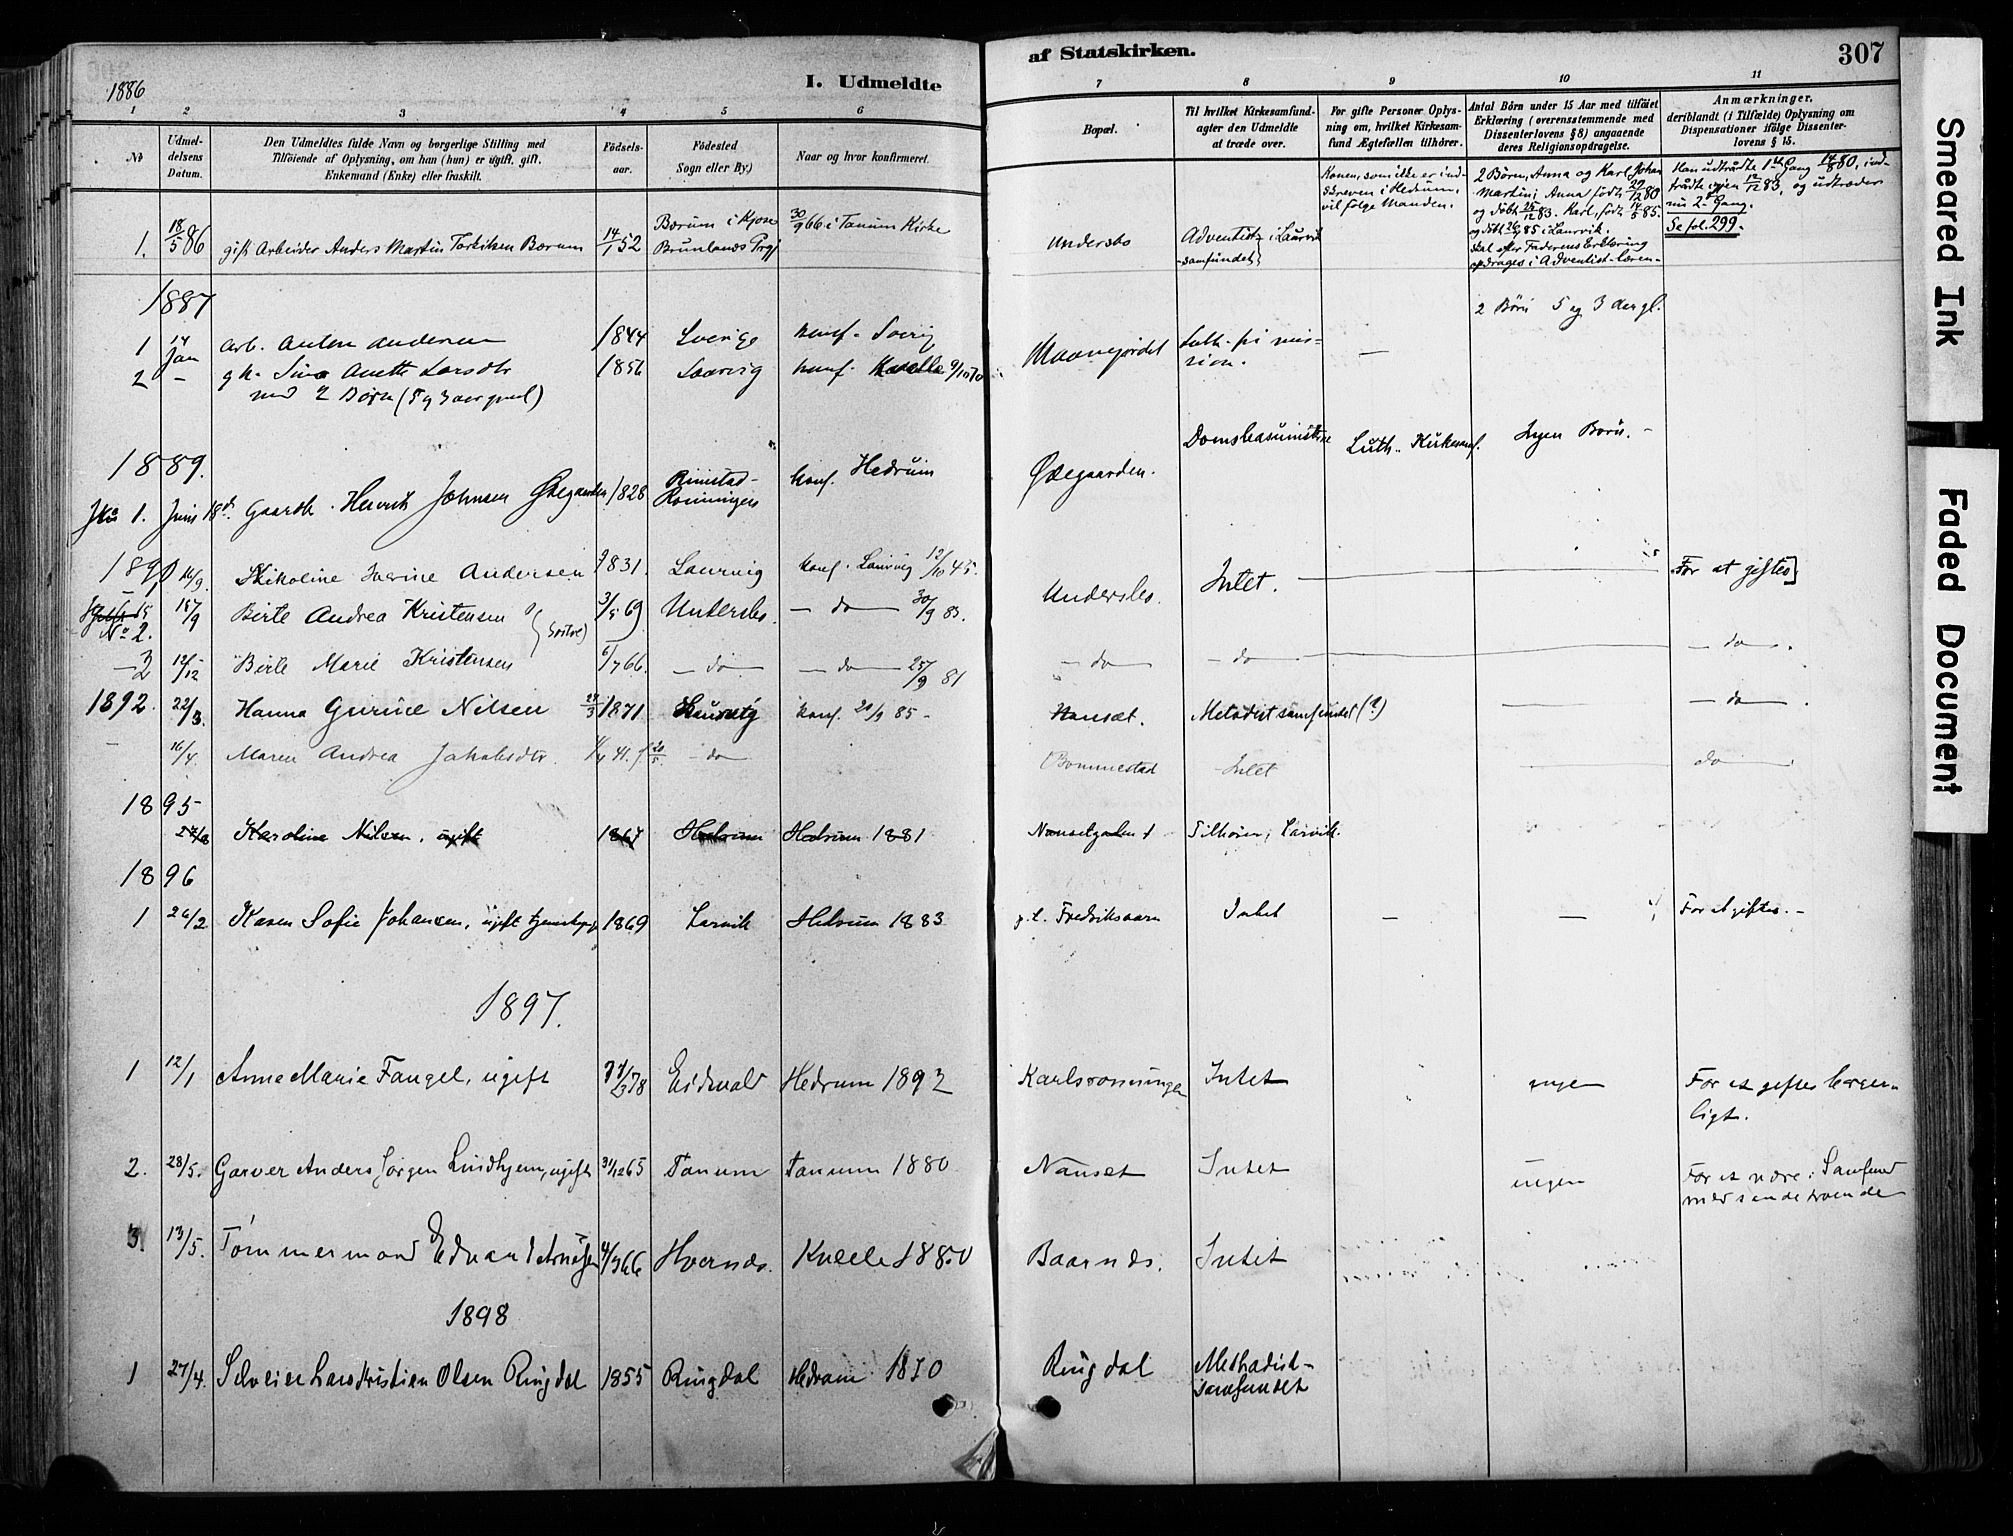 1886
I. Udmeldte
af Statskirken.
307
1 2 3 4 5 6 7 8 9 10 11
No
Udmel-
delsens
Datum.
Den Udmeldtes fulde Navn og borgerlige Stilling med
Tilföiende af Oplysning, om han (hun) er ugift, gift,
Enkemand (Enke) eller fraskilt.
Födsels-
aar.
Födested
Sogn eller By.)
Naar og hvor konfirmeret.
Bopæl.
Til hvilket Kirkesamfund-
agter den Udmeldte
at træde over.
For gifte Personer Oplys-
ning om, hvilket Kirkesam-
fund Ægtefællen tilhörer.
Antal Börn under 15 Aar med tilföiet
Erklæring (overensstemmende med
Dissenterlovens § 8) angaaende
deres Religionsopdragelse.
Anmærkninger,
deriblandt (i Tilfælde) Oplysning om
Dispensationer ifölge Dissenter-
lovens § 15.
1. 18/5 86 gift Arbeider Anders Martin Torkilsen Bærum 14/1 52
Bærum i Kjose
Brunlands Prgj
30/9 66 i Tanum Kirke
Undersbo
Adventist i Laurvik
-samfundet
Konen, som ikke er ind-
skreven i Hedrum,
vil følge Manden.
2 Børn, Anna og Karl Johan
Martin; Anna født 29/12 80
og døbt 26/12 83. Karl, født 14/5 85.
og døbt 85 i Laurvik.
skal efter Faderens Erklæring
opdrages i Adventist-læren-
Han udtrådte 1ste Gang 14/8 80, ind-
trådte igjen 12/12 83, og udtræder
nu 2den Gang.
Se fol. 299.
1887
1 14 Jan Arb. Anton Andersen 1844 Sverige konf. Sverig
Maanejordet
Luth. fri mis-
sion.
—
2 Børn 5 og 3 Aar gl.
2 - Anette Larsdtr 1856 Laurvig konf.
med 2 Børn (5 og 3 aar gamel)
1889.
No 1. Juni 18d. Gaardb. Henrik Johnsen Ødegaarden 1828
Rimstad-
Rønningen
konf. Hedrum
Ødegaarden.
Luth. Kirkesamf.
Ingen Børn. -
1890 16/9. Nikoline Andersen 1831. Laurvig konf. Laurvig 12/10 45.
Undersbo. Intet. For at giftes
No 2. 18/9 Birte Andrea Kristensen 3/5 69 Undersbo. - do - 30/9 83.
(Søstre)
- 3 12/12 Birte Marie Kristensen 6/7 66. - do - - do - 25/9 81
- do - - do - - do -.
1892. 22/3. Hanna Gurine Nilsen 1871. Laurvig konf. 85 -
Nanset. Metodistsamfundet (?) - do -.
- 16/4. Maren Andrea Jakobsdtr. - do -
Bommestad Intet do
1895
Karoline Nilsen, ugift 1867 Hedrum Hedrum 1881
Larvik.
1896
1 26/2 Karen Sofie Johansen, ugift 1869 Larvik Hedrum 1883
p.t. Fredriksværn Intet - - For at giftes. -
1897.
1 12/1 Anne Marie Fangel, ugift 78 Eidsvold Hedrum 1892
Karlsrønningen Intet ingen
For at giftes borger-
ligt.
2. 28/5. Garver Anders Jørgen Lindhjem, ugift 31/12 65 Tanum Tanum 1880
Nanset Intet ingen
For at være i Samfund
med sande troende
3. 13/5. Tømmermand Edvard 66 Hvarnes. Kvelle 1880
Baarnes. Intet
1898
1 27/4. Selveier Lars Kristian Olsen Ringdal 1855 Ringdal Hedrum 1870
Ringdal
Methodist-
samfundet
Smeared Ink
Faded Document